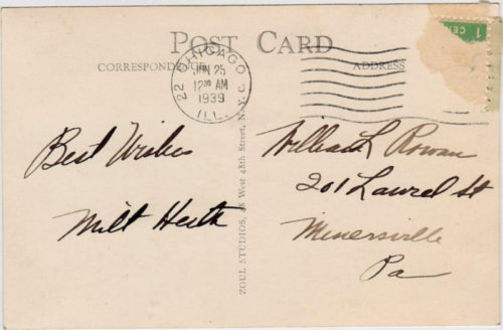 POST CARD
CORRESPONDENCE
ADDRESS
1
CHICAGO
22
JUN 25
12 AM
1939
ILL.
Best Wishes
Milt Herth
William L Rowan
201 Laurel St
Minersville
Pa
ZOUL STUDIOS, West 48th Street, N.Y.C.